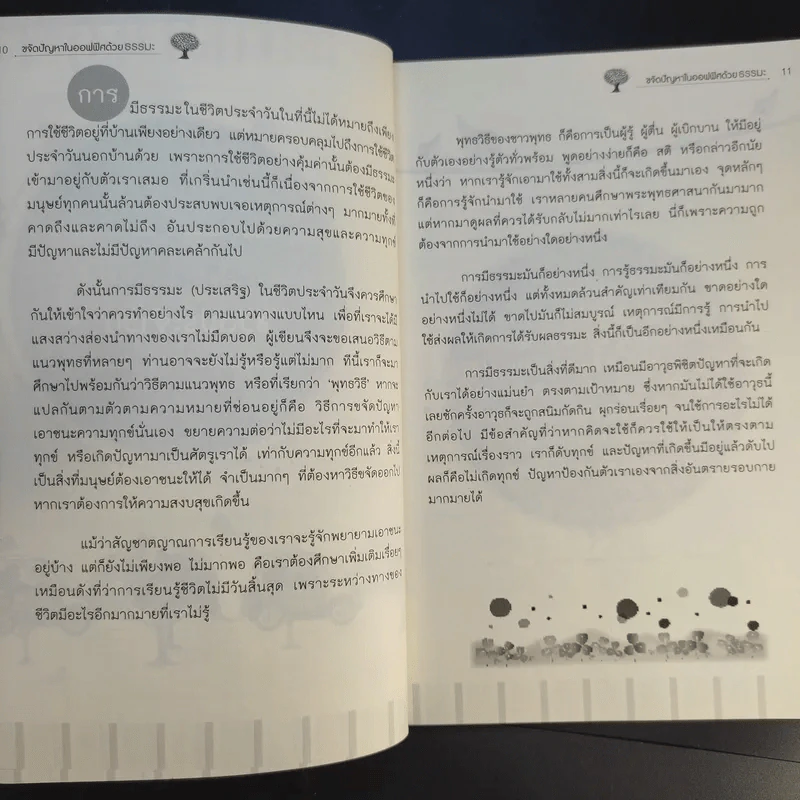 10 ขจัดปัญหาในออฟฟิศด้วยธรรมะ
การ
มีธรรมะในชีวิตประจำวันในที่นี้ไม่ได้หมายถึงเพียง
การใช้ชีวิตอยู่ที่บ้านเพียงอย่างเดียว แต่หมายครอบคลุมไปถึงการใช้ชีวิต
ประจำวันนอกบ้านด้วย เพราะการใช้ชีวิตอย่างคุ้มค่านั้นต้องมีธรรมะ
เข้ามาอยู่กับตัวเราเสมอ ที่เกริ่นนำเช่นนี้ก็เนื่องจากการใช้ชีวิตของ
มนุษย์ทุกคนนั้นล้วนต้องประสบพบเจอเหตุการณ์ต่างๆ มากมายทั้งที่
คาดถึงและคาดไม่ถึง อันประกอบไปด้วยความสุขและความทุกข์
มีปัญหาและไม่มีปัญหาคละเคล้ากันไป
ดังนั้นการมีธรรมะ (ประเสริฐ) ในชีวิตประจำวันจึงควรศึกษา
กันให้เข้าใจว่าควรทำอย่างไร ตามแนวทางแบบไหน เพื่อที่เราจะได้มี
แสงสว่างส่องนำทางของเราไม่มืดบอด ผู้เขียนจึงจะขอเสนอวิธีตาม
แนวพุทธที่หลายๆ ท่านอาจจะยังไม่รู้หรือรู้แต่ไม่มาก ทีนี้เราก็จะมา
ศึกษาไปพร้อมกันว่าวิธีตามแนวพุทธ หรือที่เรียกว่า ‘พุทธวิธี’ หากจะ
แปลกันตามตัวตามความหมายที่ซ่อนอยู่ก็คือ วิธีการขจัดปัญหา
เอาชนะความทุกข์นั่นเอง ขยายความต่อว่าไม่มีอะไรที่จะมาทำให้เรา
ทุกข์ หรือเกิดปัญหามาเป็นศัตรูเราได้ เท่ากับความทุกข์อีกแล้ว สิ่งนี้
เป็นสิ่งที่มนุษย์ต้องเอาชนะให้ได้ จำเป็นมากๆ ที่ต้องหาวิธีขจัดออกไป
หากเราต้องการให้ความสงบสุขเกิดขึ้น
แม้ว่าสัญชาตญาณการเรียนรู้ของเราจะรู้จักพยายามเอาชนะ
อยู่บ้าง แต่ก็ยังไม่เพียงพอ ไม่มากพอ คือเราต้องศึกษาเพิ่มเติมเรื่อยๆ
เหมือนดังที่ว่าการเรียนรู้ชีวิตไม่มีวันสิ้นสุด เพราะระหว่างทางของ
ชีวิตมีอะไรอีกมากมายที่เราไม่รู้
ขจัดปัญหาในออฟฟิศด้วยธรรมะ 11
พุทธวิธีของชาวพุทธ ก็คือการเป็นผู้รู้ ผู้ตื่น ผู้เบิกบาน ให้มีอยู่
กับตัวเองอย่างรู้ตัวทั่วพร้อม พูดอย่างง่ายก็คือ สติ หรือกล่าวอีกนัย
หนึ่งว่า หากเรารู้จักเอามาใช้ทั้งสามสิ่งนี้ก็จะเกิดขึ้นมาเอง จุดหลักๆ
ก็คือการรู้จักนำมาใช้ เราหลายคนศึกษาพระพุทธศาสนากันมามาก
แต่หากมาดูผลที่ควรได้รับกลับไม่มากเท่าไรเลย นี่ก็เพราะความถูก
ต้องจากการนำมาใช้อย่างใดอย่างหนึ่ง
การมีธรรมะมันก็อย่างหนึ่ง การรู้ธรรมะมันก็อย่างหนึ่ง การ
นำไปใช้ก็อย่างหนึ่ง แต่ทั้งหมดล้วนสำคัญเท่าเทียมกัน ขาดอย่างใด
อย่างหนึ่งไม่ได้ ขาดไปมันก็ไม่สมบูรณ์ เหตุการณ์มีการรู้ การนำไป
ใช้ส่งผลให้เกิดการได้รับผลธรรมะ สิ่งนี้ก็เป็นอีกอย่างหนึ่งเหมือนกัน
การมีธรรมะเป็นสิ่งที่ดีมาก เหมือนมีอาวุธพิชิตปัญหาที่จะเกิด
กับเราได้อย่างแม่นยำ ตรงตามเป้าหมาย ซึ่งหากมันไม่ได้ใช้อาวุธนี้
เลยซักครั้งอาวุธก็จะถูกสนิมกัดกิน ผุกร่อนเรื่อยๆ จนใช้การอะไรไม่ได้
อีกต่อไป มีข้อสำคัญที่ว่าหากคิดจะใช้ก็ควรใช้ให้เป็นให้ตรงตาม
เหตุการณ์เรื่องราว เราก็ดับทุกข์ และปัญหาที่เกิดขึ้นมีอยู่แล้วดับไป
ผลก็คือไม่เกิดทุกข์ ปัญหาป้องกันตัวเราเองจากสิ่งอันตรายรอบกาย
มากมายได้